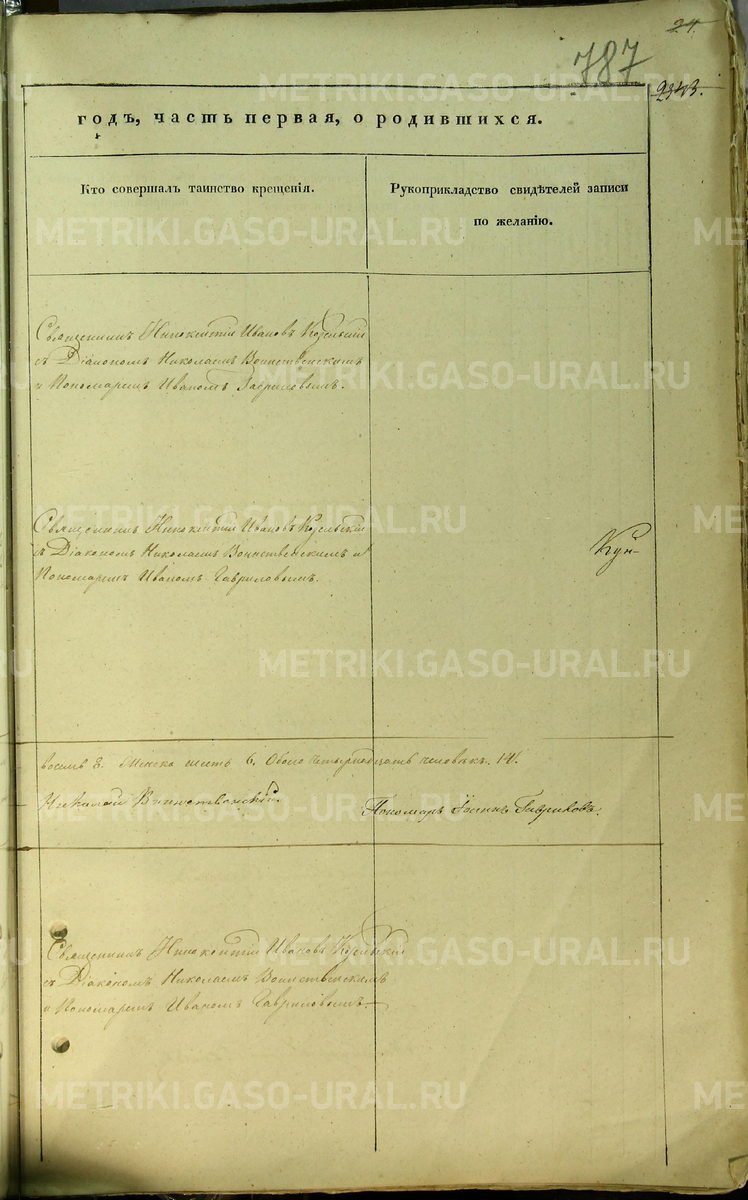 24.
787
2343.
годъ, часть первая, о родившихся.
Кто совершалъ таинство крещенія.
Рукоприкладство свидѣтелей записи
по желанію.
Священникъ Иннокентій Ивановъ Козельскій
съ Діакономъ Николаемъ Воинственскимъ
и Пономаремъ Иваномъ Гавриловымъ.
Священникъ Иннокентій Ивановъ Козельскій
съ Діакономъ Николаемъ Воинственскимъ и
Пономаремъ Иваномъ Гавриловымъ.
Кун-
восемь 8. Женска шесть 6. Обоего четырнадцать человѣкъ. 14.
Николай Воинственскій.
Пономарь Іоаннъ Гавриловъ.
Священникъ Иннокентій Ивановъ Козельскій
съ Діакономъ Николаемъ Воинственскимъ
и Пономаремъ Иваномъ Гавриловымъ.
METRIKI.GASO-URAL.RU